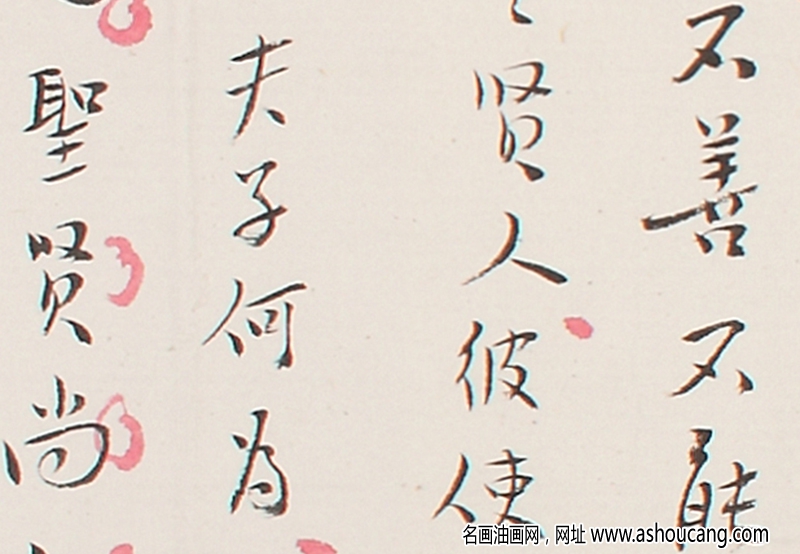 不善不能
贤人彼使
夫子何为
聖贤尚
名画油画网，网址 www.ashoucang.com